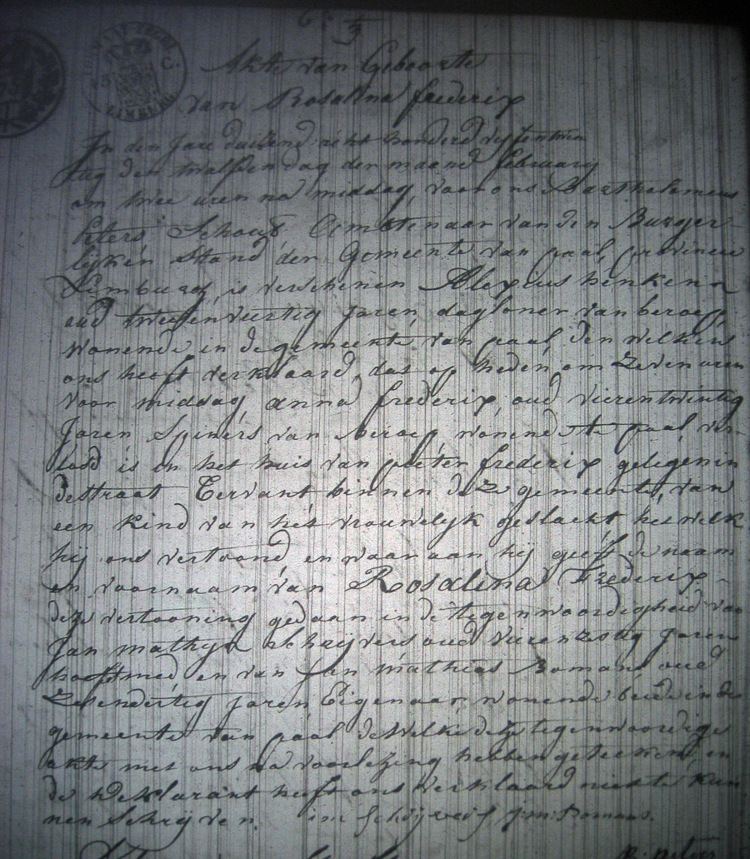 Akte van Geboorte
van Rosalina frederix
In den Jare duizend acht honderd
tag den twalfden dag der maend february
om twee uren na middag, voor ons Barthelemeus
peters Schout Ambtenaar van den Burger-
lijken Stand der Gemeente van paal, provincie
Limburg, is verschenen Alexius henkens
oud tweeenveertig Jaren dagloner van beroep,
wonende in de gemeente van paal, den welken
ons heeft verklaard, dat op heden om zeven uren
voor middag anna frederix, oud vierentwintig
Jaren Spiners van beroep, wonende te paal, ver-
lost is in het huis van peter frederix gelegen in
de straat Tervant binnen deze gemeente, van
een kind van het vrouwelyk geslacht het welk
hij ons vertoond en waar aan hij geeft de naam
en voornaam van Rosalina Frederix -
deze vertooning gedaan in de tegenwoordigheid van
Jan mathys schrijvers oud Jaren
en van Jan mathias Romans oud
Jaren Eigenaar, wonende beide in de
gemeente van paal dewelke deze tegenwoordige
akte met ons na voorlezing hebben geteekend, en
de deklarant heeft ons verklaard niet te kun-
nen Schrijven. j:m: Schrijvers j:m: Romans.